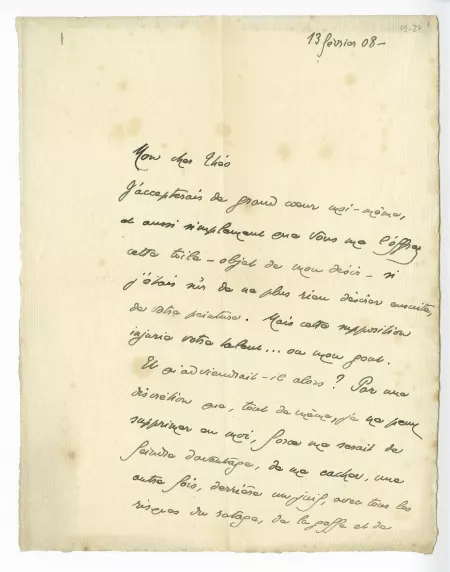 09-27
13 février 08-
Mon cher Théo
J'accepterais de grand cœur moi-même,
et aussi simplement que vous me l'offrez
cette toile - objet de mon désir - si
j'étais sûr de ne plus rien désirer ensuite,
de votre peinture. Mais cette supposition
injurie votre talent... ou mon gout.
Et qu'adviendrait-il alors ? Par une
discrétion que, tout de même, je ne peux
supprimer en moi, force me serait de
feindre davantage, de me cacher, une
autre fois, derrière un juif, avec tous les
risques du ratage, de la gaffe et de